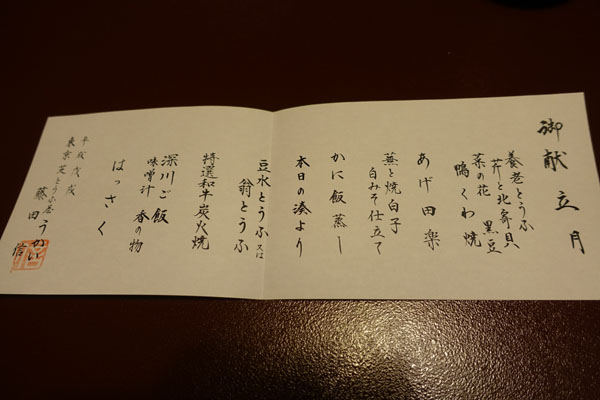 御献立 月
養老とうふ
芹と北寄貝
菜の花 黒豆
鴨くわ焼
あげ田楽
蕪と焼白子
白みそ仕立て
かに飯蒸し
本日の湊より
豆水とうふ又は
翁とうふ
特選和牛炭火焼
深川ご飯
味噌汁 香の物
はっさく
平成戊戌
東京芝とうふ屋うかい
藤田